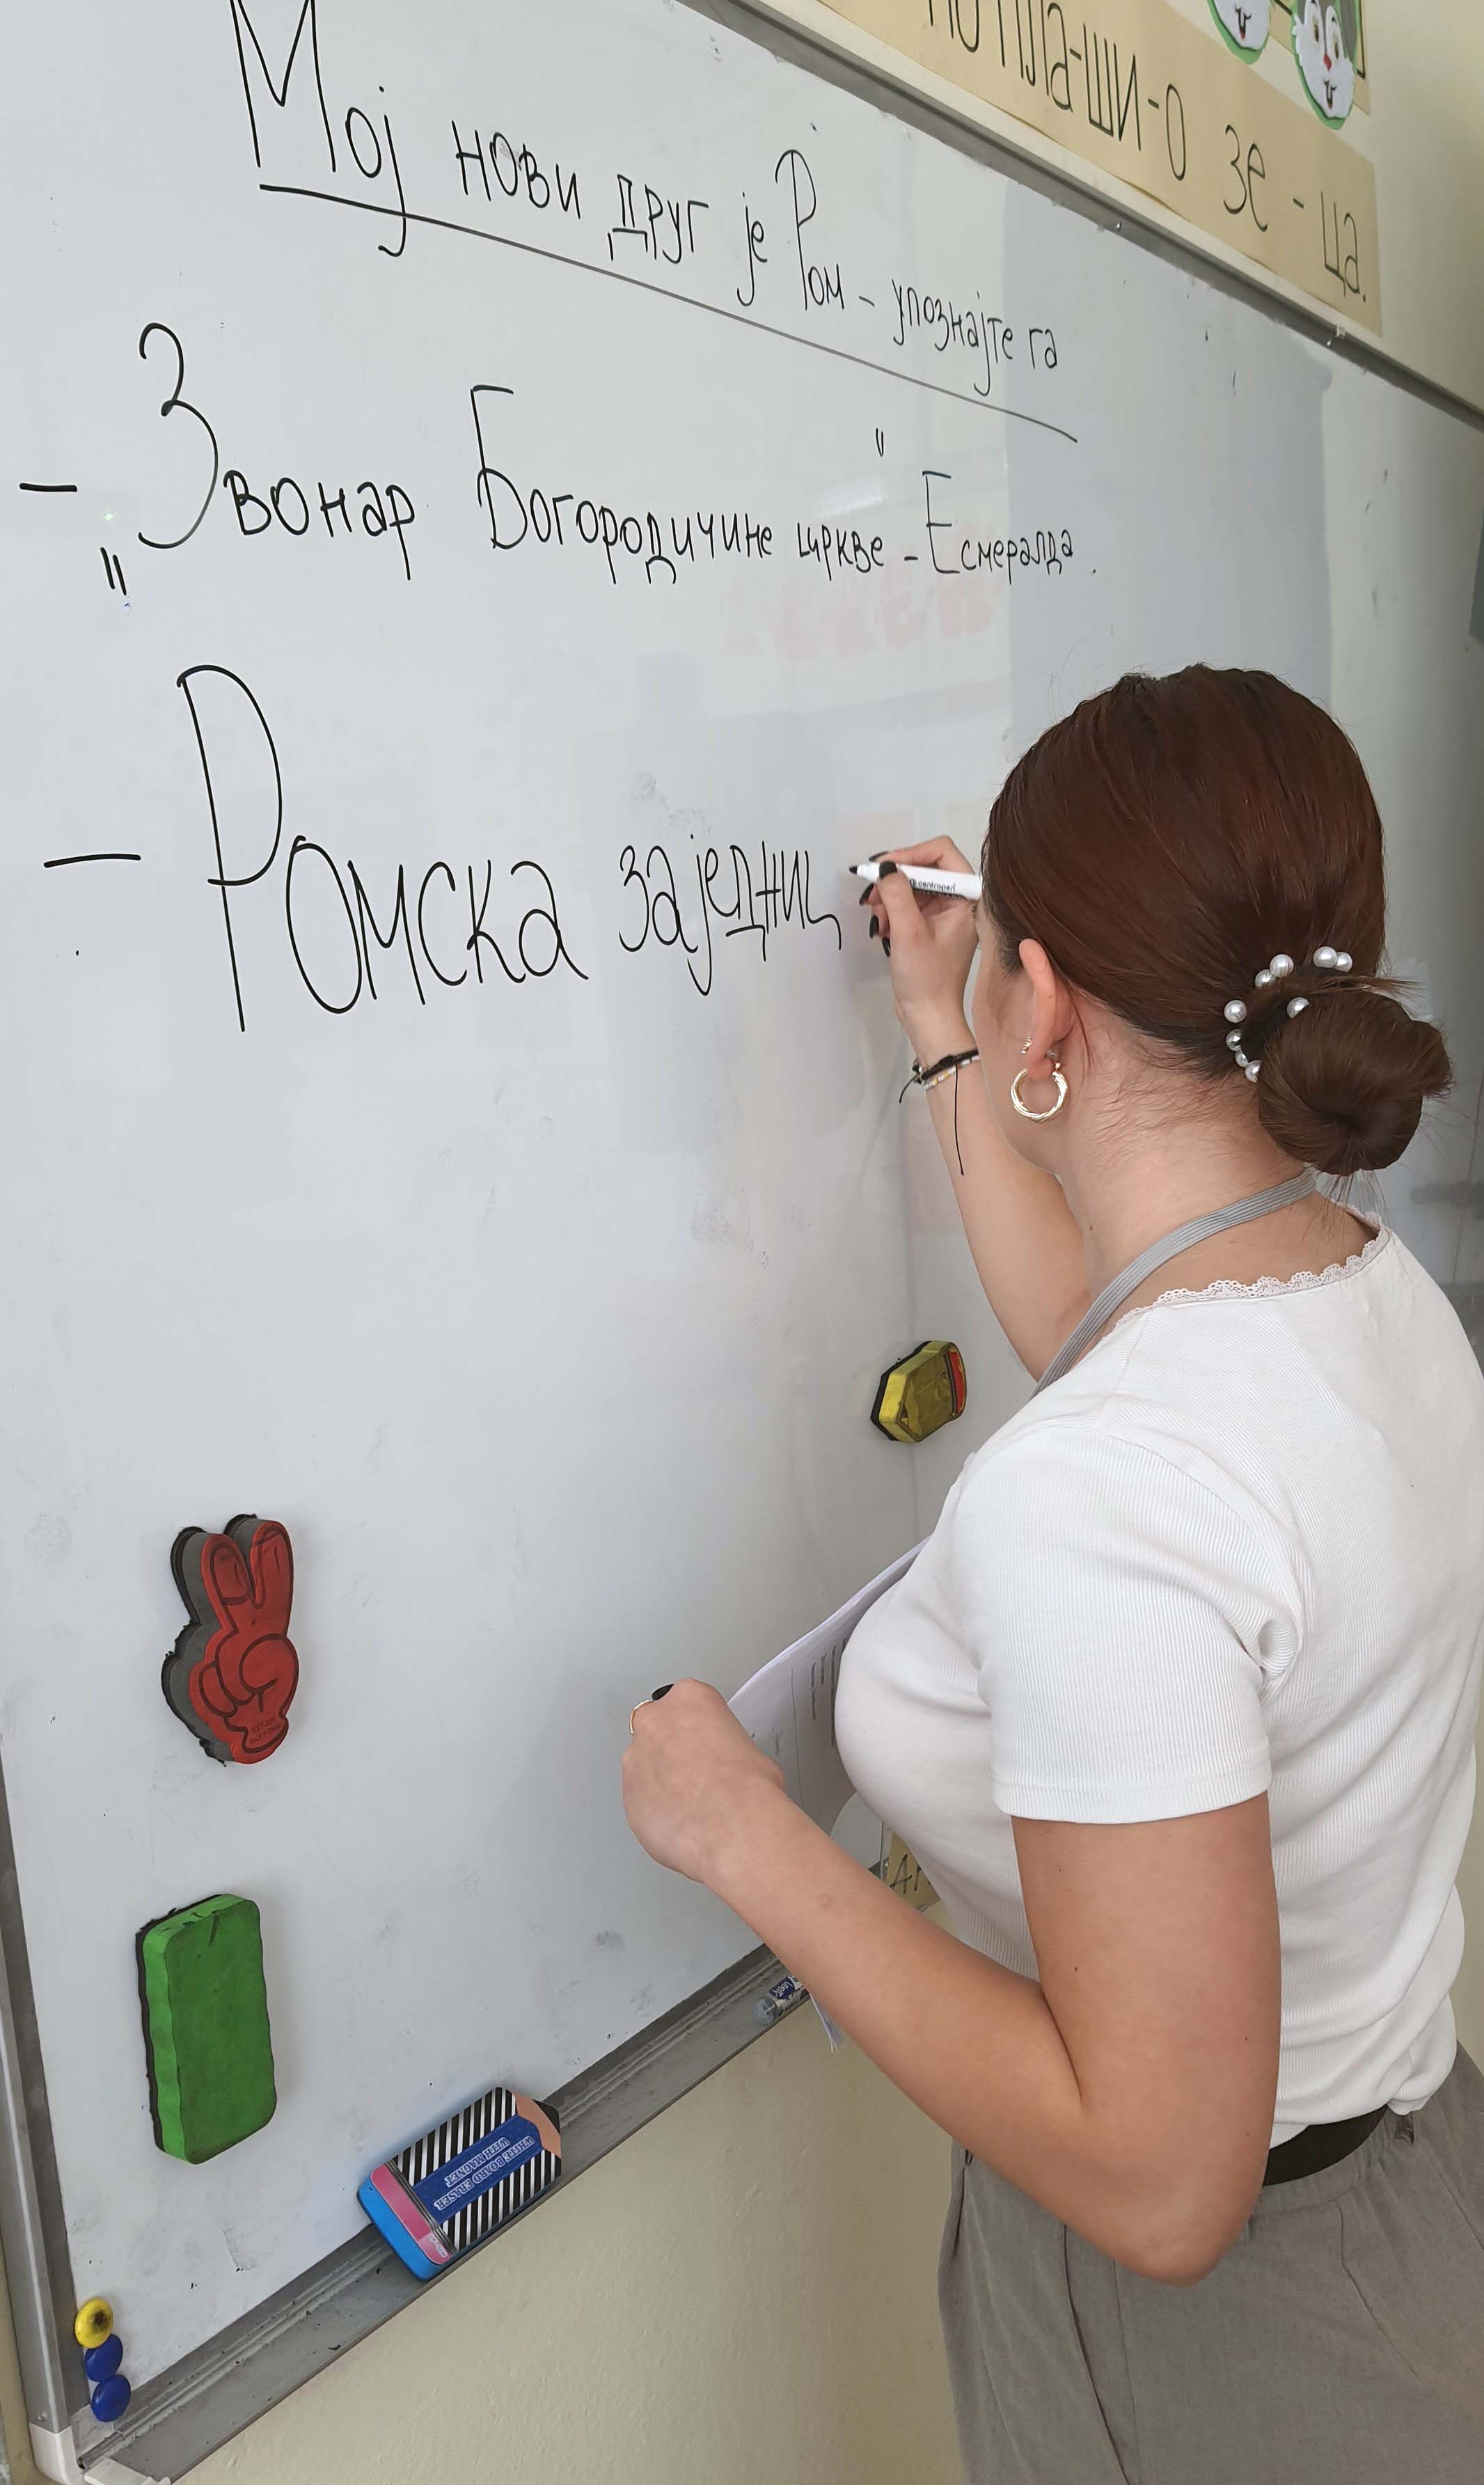 ПЛА-ШИ-О ЗЕ - ЦА.
Мој нови друг је Ром - упознајте га
- „Звонар Богородичине цркве" - Есмералда.
- Ромска заједниц
centropen
WHITE BOARD ERASER
WITH MAGNET